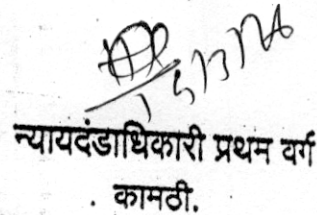 न्यायदंडाधिकारी प्रथम वर्ग
. कामठी.